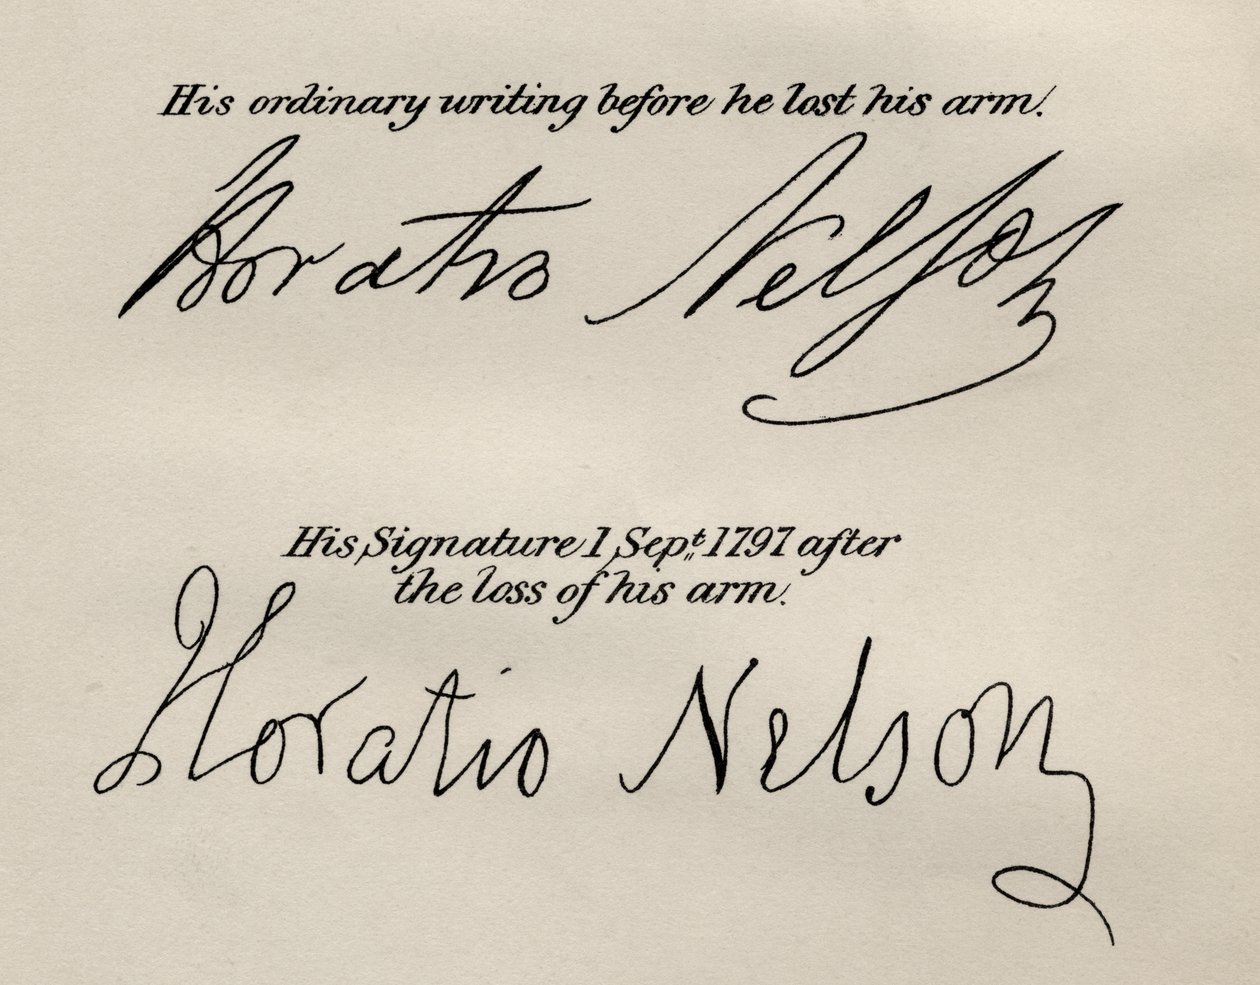 His ordinary writing before he lost his arm.
Horatio Nelson
His Signature 1 Sept. 1797 after
the loss of his arm.
Horatio Nelson